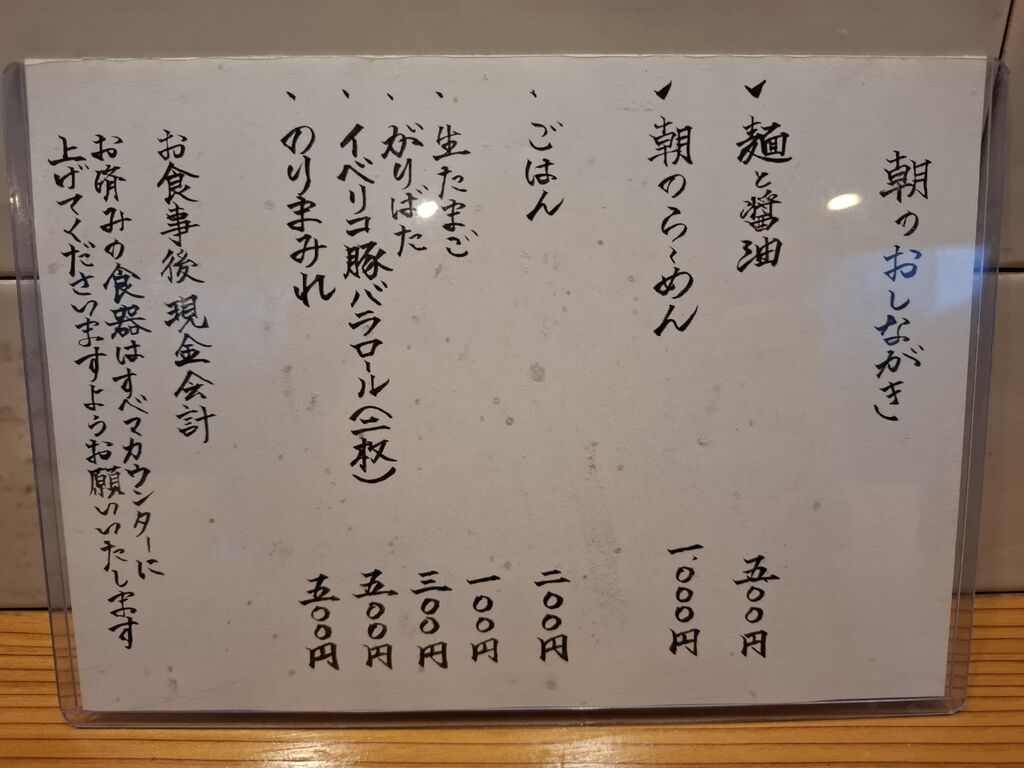 朝のおしながき
麺と醤油 五〇〇円
朝のらぁめん 一.〇〇〇円
、ごはん 二〇〇円
、生たまご 一〇〇円
、がりばた 三〇〇円
、イベリコ豚バラロール(二枚) 五〇〇円
、のりまみれ 五〇〇円
お食事後現金会計
お済みの食器はすべてカウンターに
上げてくださいますようお願いいたします